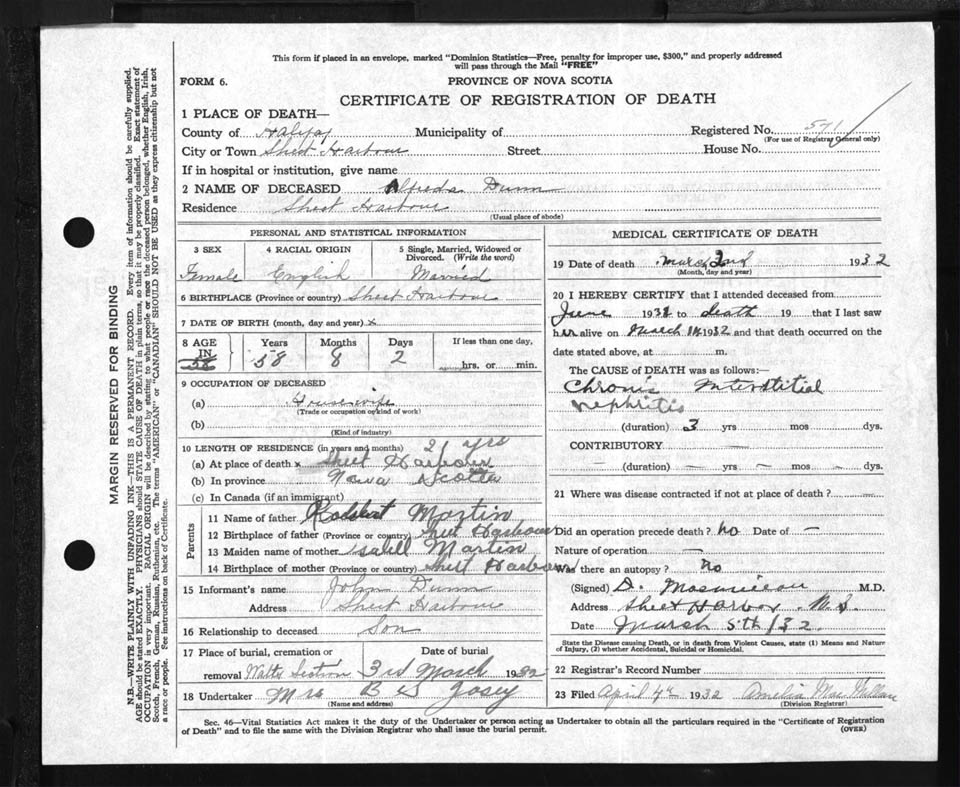 This form if placed in an envelope, marked "Dominion Statistics—Free, penalty for improper use, $300," and properly addressed
will pass through the Mail "FREE"
FORM 6.
PROVINCE OF NOVA SCOTIA
CERTIFICATE OF REGISTRATION OF DEATH
1 PLACE OF DEATH—
County of Halifax Municipality of Registered No. 571
(For use of Registrar General only)
City or Town Sheet Harbour Street House No.
If in hospital or institution, give name
2 NAME OF DECEASED Alfreda Dunn
Residence Sheet Harbour
(Usual place of abode)
PERSONAL AND STATISTICAL INFORMATION
3 SEX 4 RACIAL ORIGIN 5 Single, Married, Widowed or
Divorced. (Write the word)
Female English Married
6 BIRTHPLACE (Province or country) Sheet Harbour
7 DATE OF BIRTH (month, day and year) x
8 AGE Years Months Days If less than one day,
IN
58 58 8 2 hrs. or min.
9 OCCUPATION OF DECEASED
(a) Housewife
(Trade or occupation or kind of work)
(b)
(Kind of industry)
10 LENGTH OF RESIDENCE (in years and months) 21 yrs
(a) At place of death x Sheet Harbour
(b) In province Nova Scotia
(c) In Canada (if an immigrant)
Parents
11 Name of father Robert Martin
12 Birthplace of father (Province or country) Sheet Harbour
13 Maiden name of mother Isabell Martin
14 Birthplace of mother (Province or country) Sheet Harbour
15 Informant's name John Dunn
Address Sheet Harbour
16 Relationship to deceased Son
17 Place of burial, cremation or Date of burial
removal Watts Section 3rd March 1932
18 Undertaker Mrs B D Josey
(Name and address)
MEDICAL CERTIFICATE OF DEATH
19 Date of death March 2nd 1932
(Month, day and year)
20 I HEREBY CERTIFY that I attended deceased from
June 1931 to death 19 that I last saw
her alive on March 1st 1932 and that death occurred on the
date stated above, at m.
The CAUSE of DEATH was as follows:
Chronic Interstitial
nephritis
(duration) 3 yrs — mos dys.
CONTRIBUTORY —
— (duration) — yrs — mos — dys.
21 Where was disease contracted if not at place of death? —
Did an operation precede death? no Date of —
Nature of operation —
Was there an autopsy? no
(Signed) D. M.D.
Address Sheet Harbor N.S.
Date March 5th/32
State the Disease causing Death, or in death from Violent Causes, state (1) Means and Nature
of Injury, (2) whether Accidental, Suicidal or Homicidal.
22 Registrar's Record Number
23 Filed April 4th 1932 Amelia
(Division Registrar)
Sec. 46—Vital Statistics Act makes it the duty of the Undertaker or person acting as Undertaker to obtain all the particulars required in the "Certificate of Registration
of Death" and to file the same with the Division Registrar who shall issue the burial permit.
(OVER)
MARGIN RESERVED FOR BINDING
N.B.—WRITE PLAINLY WITH UNFADING INK—THIS IS A PERMANENT RECORD. Every item of information should be carefully supplied.
AGE should be stated EXACTLY. PHYSICIANS should STATE CAUSE OF DEATH in plain terms, so that it may be properly classified. Exact statement of
OCCUPATION is very important. RACIAL ORIGIN will be described by stating to what people or race the deceased person belonged, whether English, Irish,
Scotch, French, German, Russian, Ruthenian, etc. The terms "AMERICAN" or "CANADIAN" SHOULD NOT BE USED as they express citizenship but not
a race or people. See instructions on back of Certificate.